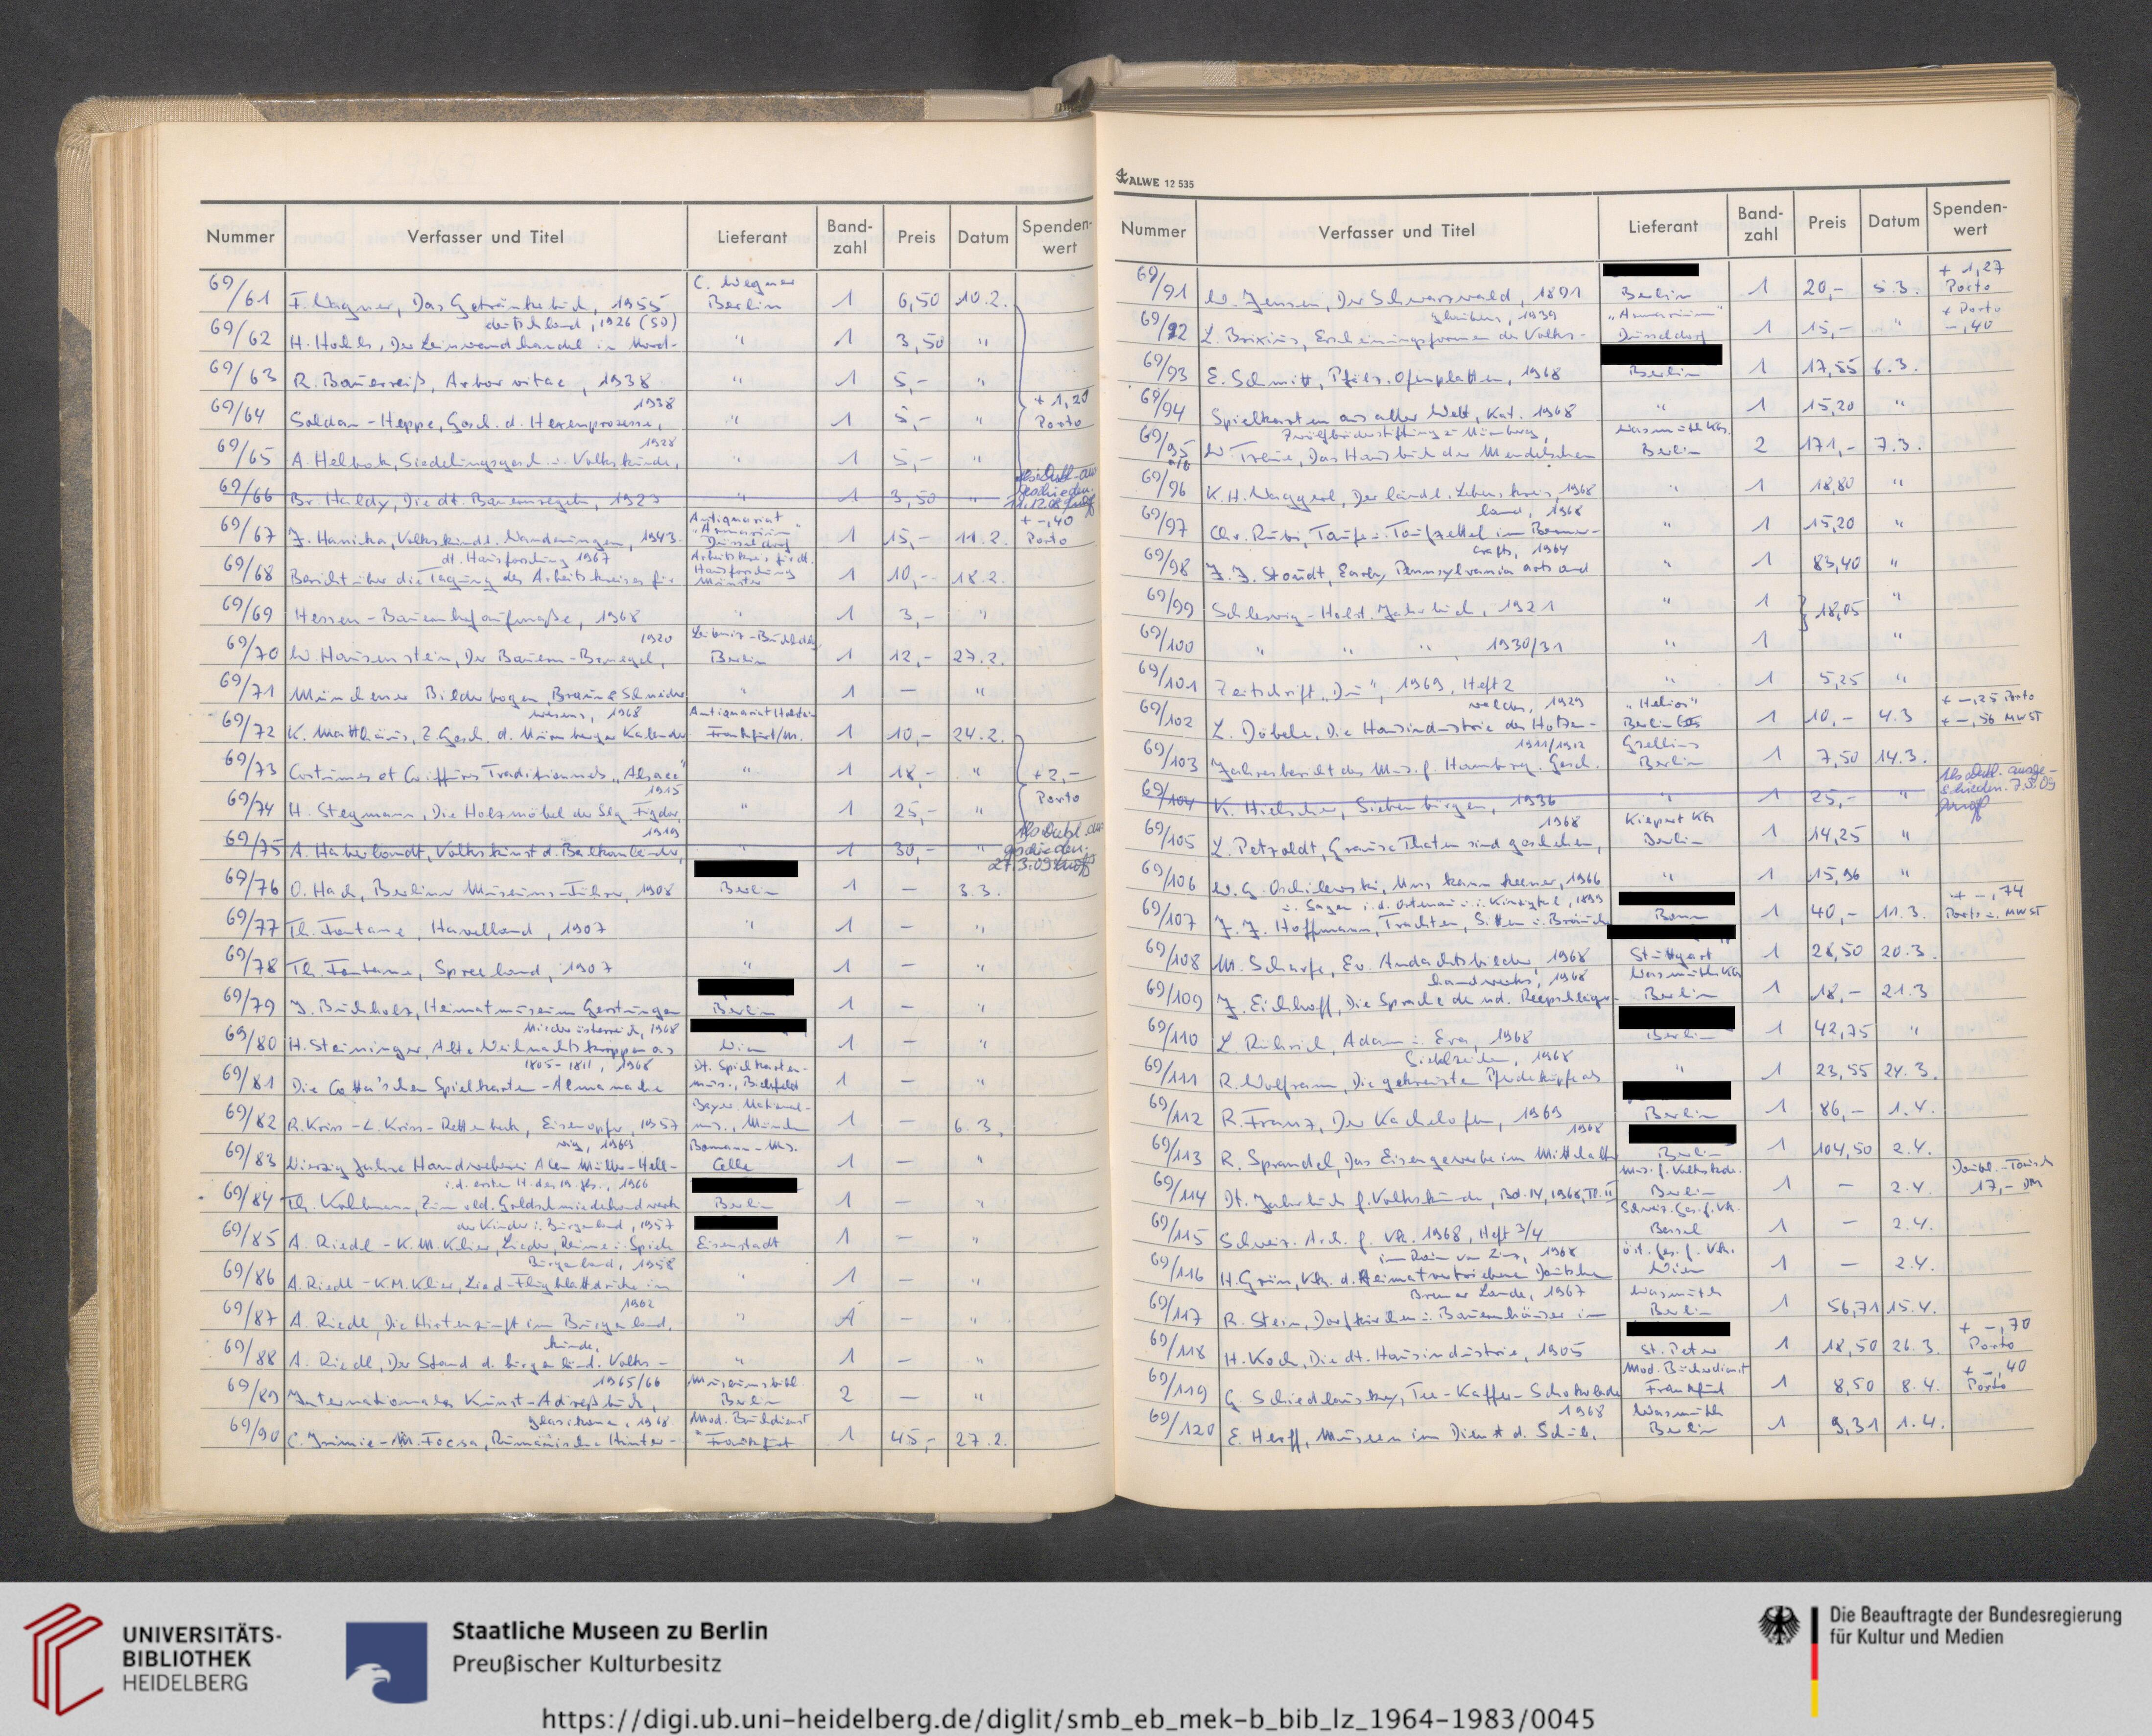 Nummer Verfasser und Titel Lieferant Band-zahl Preis Datum Spenden-wert
69/61 F. Wagner, Das Getränkebuch, 1955 C. Wegner Berlin 1 6,50 10.2.
deutschland, 1926 (SD)
69/62 H. Hohls, Der Leinwandhandel in Nord- " 1 3,50 "
69/63 R. Bauerreiß, Arbor vitae, 1938 " 1 5,- "
1938 + 1,20
69/64 Soldan-Heppe, Gesch. d. Hexenprozesse, " 1 5,- " Porto
1928
69/65 A. Helbok, Siedelungsgesch. u. Volkskunde, " 1 5,- "
69/66 Br. Haldy, Die dt. Bauernregeln, 1923 " 1 3,50 "
69/67 J. Hanika, Volkskundl. Wanderungen, 1943 Antiquariat Düsseldorf 1 15,- 11.2. + -,40 Porto
dt. Hausforschung 1967
69/68 Bericht über die Tagung des Arbeitskreises für Arbeitskreis für dt. Hausforschung Münster 1 10,- 18.2.
69/69 Hessen-Bauernhofaufmaße, 1968 " 1 3,- "
1920
69/70 W. Hausenstein, Der Bauern-Bruegel, Leibniz-Buchhdlg Berlin 1 12,- 27.2.
69/71 Münchener Bilderbogen, Braun & Schneider " 1 — "
wesens, 1968
69/72 K. Matthäus, Z. Gesch. d. Nürnberger Kalender Antiquariat Frankfurt/M. 1 10,- 24.2.
69/73 Costumes et Coiffures Traditionnels "Alsace" " 1 18,- " + 2,-
1915 Porto
69/74 H. Stegmann, Die Holzmöbel der Slg Figdor, " 1 25,- "
1919
69/75 A. Haberlandt, Volkskunst d. Balkanländer, " 1 30,- "
69/76 O. Hach, Berliner Museums-Führer, 1908 Berlin 1 — 3.3.
69/77 Th. Fontane, Havelland, 1907 " 1 — "
69/78 Th. Fontane, Spreeland, 1907 " 1 — "
69/79 J. Buchholz, Heimatmuseum Gerstungen Berlin 1 — "
Niederösterreich, 1968
69/80 H. Steininger, Alte Weihnachtskrippen aus Wien 1 — "
1805-1811, 1968
69/81 Die Cotta'schen Spielkarten-Almanache Dt. Spielkarten-mus., Bielefeld 1 — "
69/82 R. Kriss-L. Kriss-Rettenbeck, Eisenopfer, 1957 Bayer. National-mus., München 1 — 6.3.
69/83 Vierzig Jahre Handweberei Alen Müller-Hell- Bomann-Mus. Celle 1 — "
i.d. ersten H. des 19. Jhs., 1966
69/84 Th. Kohlmann, Zum Goldschmiedehandwerk Berlin 1 — "
der Kinder i. Burgenland, 1957
69/85 A. Riedl-K.M. Klier, Lieder, Reime u. Spiele Eisenstadt 1 — "
Burgenland, 1958
69/86 A. Riedl-K.M. Klier, Lied-Flugblattdrucke im " 1 — "
1962
69/87 A. Riedl, Die Hirtenzunft im Burgenland, " 1 — "
kunde,
69/88 A. Riedl, Der Stand d. burgenländ. Volks- " 1 — "
1965/66
69/89 Internationales Kunst-Adreßbuch, Museumsbibl. Berlin 2 — "
1968
69/90 C. Irimie-M. Focsa, Rumänische Hinter- Mod. Buchdienst Frankfurt 1 45,- 27.2.
ALWE 12 535
Nummer Verfasser und Titel Lieferant Band-zahl Preis Datum Spenden-wert
69/91 W. Jensen, Der Schwarzwald, 1891 Berlin 1 20,- 5.3. + 1,27 Porto
glaubens, 1939
69/92 L. Brixius, Erscheinungsformen des Volks- Düsseldorf 1 15,- " + Porto -,40
69/93 E. Schmitt, Pfälz. Ofenplatten, 1968 Berlin 1 17,55 6.3.
69/94 Spielkarten aus aller Welt, Kat. 1968 " 1 15,20 "
Zwölfbrüderstiftung zu Nürnberg,
69/95 a/b W. Treue, Das Hausbuch der Mendelschen Wasmuth KG. Berlin 2 171,- 7.3.
69/96 K.H. Waggerl, Der ländl. Lebenskreis, 1968 " 1 18,80 "
land, 1968
69/97 Chr. Rubi, Taufe u. Taufzettel im Berner- " 1 15,20 "
crafts, 1964
69/98 J.J. Stoudt, Early Pennsylvania arts and " 1 83,40 "
69/99 Schleswig-Holst. Jahrbuch, 1921 " 1 18,05 "
69/100 " " " 1930/31 " 1 "
69/101 Zeitschrift "Du", 1969, Heft 2 " 1 5,25 "
waldes, 1929
69/102 L. Döbele, Die Hausindustrie des Hotzen- "Helios" Berlin 1 10,- 4.3 + -,25 Porto + -,56 MWST
1911/1912
69/103 Jahresbericht des Mus. f. Hamburg. Gesch. Gsellius Berlin 1 7,50 14.3.
69/104 K. Hielscher, Siebenbürgen, 1936 " 1 25,- " Als Dubl. ausge-schieden. 7.5.09
1968
69/105 L. Petzoldt, Grause Thaten sind geschehen, Kiepert KG Berlin 1 14,25 "
69/106 W.G. Oschilewski, Uns kann keener, 1966 " 1 15,96 "
u. Sagen i.d. Ortenau u. i. Kinzigtal, 1899
69/107 J.J. Hoffmann, Trachten, Sitten u. Bräuche Bonn 1 40,- 11.3. + -,74 Porto u. MWST
69/108 M. Scharfe, Ev. Andachtsbilder, 1968 Stuttgart 1 28,50 20.3.
handwerks, 1968
69/109 J. Eichhoff, Die Sprache des nd. Reepschläger- Wasmuth KG Berlin 1 18,- 21.3
69/110 L. Röhrich, Adam u. Eva, 1968 Berlin 1 42,75 "
Giebelzeichen, 1968
69/111 R. Wolfram, Die gekreuzten Pferdeköpfe als " 1 23,55 24.3.
69/112 R. Franz, Der Kachelofen, 1969 Berlin 1 86,- 1.4.
1968
69/113 R. Sprandel, Das Eisengewerbe im Mittelalter Berlin 1 104,50 2.4.
69/114 Dt. Jahrbuch f. Volkskunde, Bd. 14, 1968, Tl. II Mus. f. Volkskde. Berlin 1 — 2.4. Doubl.-Tausch 17,- DM
69/115 Schweiz. Arch. f. Vk. 1968, Heft 3/4 Schweiz. Ges. f. Vk. Basel 1 — 2.4.
1968
69/116 H. Grün, Vk. d. heimatvertriebenen Deutschen Öst. Ges. f. Vk. Wien 1 — 2.4.
Bremer Lande, 1967
69/117 R. Stein, Dorfkirchen u. Bauernhäuser im Wasmuth Berlin 1 56,71 15.4.
69/118 H. Koch, Die dt. Hausindustrie, 1905 St. Peter 1 18,50 26.3. + -,70 Porto
69/119 G. Schiedlausky, Tee-Kaffee-Schokolade Mod. Bücherdienst Frankfurt 1 8,50 8.4. + -,40 Porto
1968
69/120 E. Herff, Museen im Dienst d. Schule, Wasmuth Berlin 1 9,31 1.4.
UNIVERSITÄTS-
BIBLIOTHEK
HEIDELBERG
Staatliche Museen zu Berlin
Preußischer Kulturbesitz
Die Beauftragte der Bundesregierung
für Kultur und Medien
https://digi.ub.uni-heidelberg.de/diglit/smb_eb_mek-b_bib_lz_1964-1983/0045